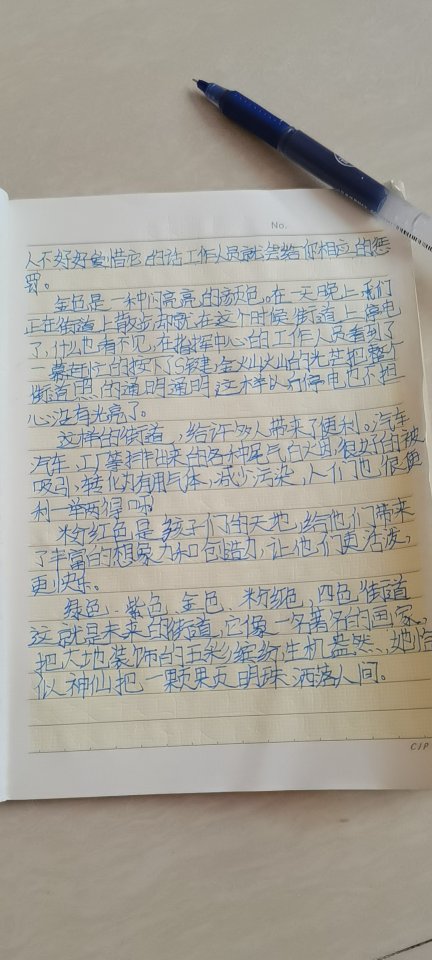 No.
人不好好爱惜它的话工作人员就会给你相应的惩
罚。
金色是一种闪亮亮的颜色。在一天晚上,我们
正在街道上散步却就在这个时候街道上停电
了,什么也看不见,在指挥中心的工作人员看到了
一幕连忙的按下了S键,金灿灿的光芒把整个
街道照的通明通明这样以后停电也不担
心没有光亮了。
这样的街道,给许多人带来了便利。汽车
汽车、工厂等排出来的各种尾气大因很好的被
吸引,转化为有用气体,减少污染,人们也很便
利一举两得啊
粉红色是孩子们的天地,给他们带来
了丰富的想象力和创造力,让他们更活泼,
更快乐。
绿色、紫色、金色、粉红色,四色街道
这就是未来的街道,它像一名著名的画家,
把大地装饰的五彩缤纷,生机盎然,她恰
似神仙把一颗颗夜明珠洒落人间。
CJP